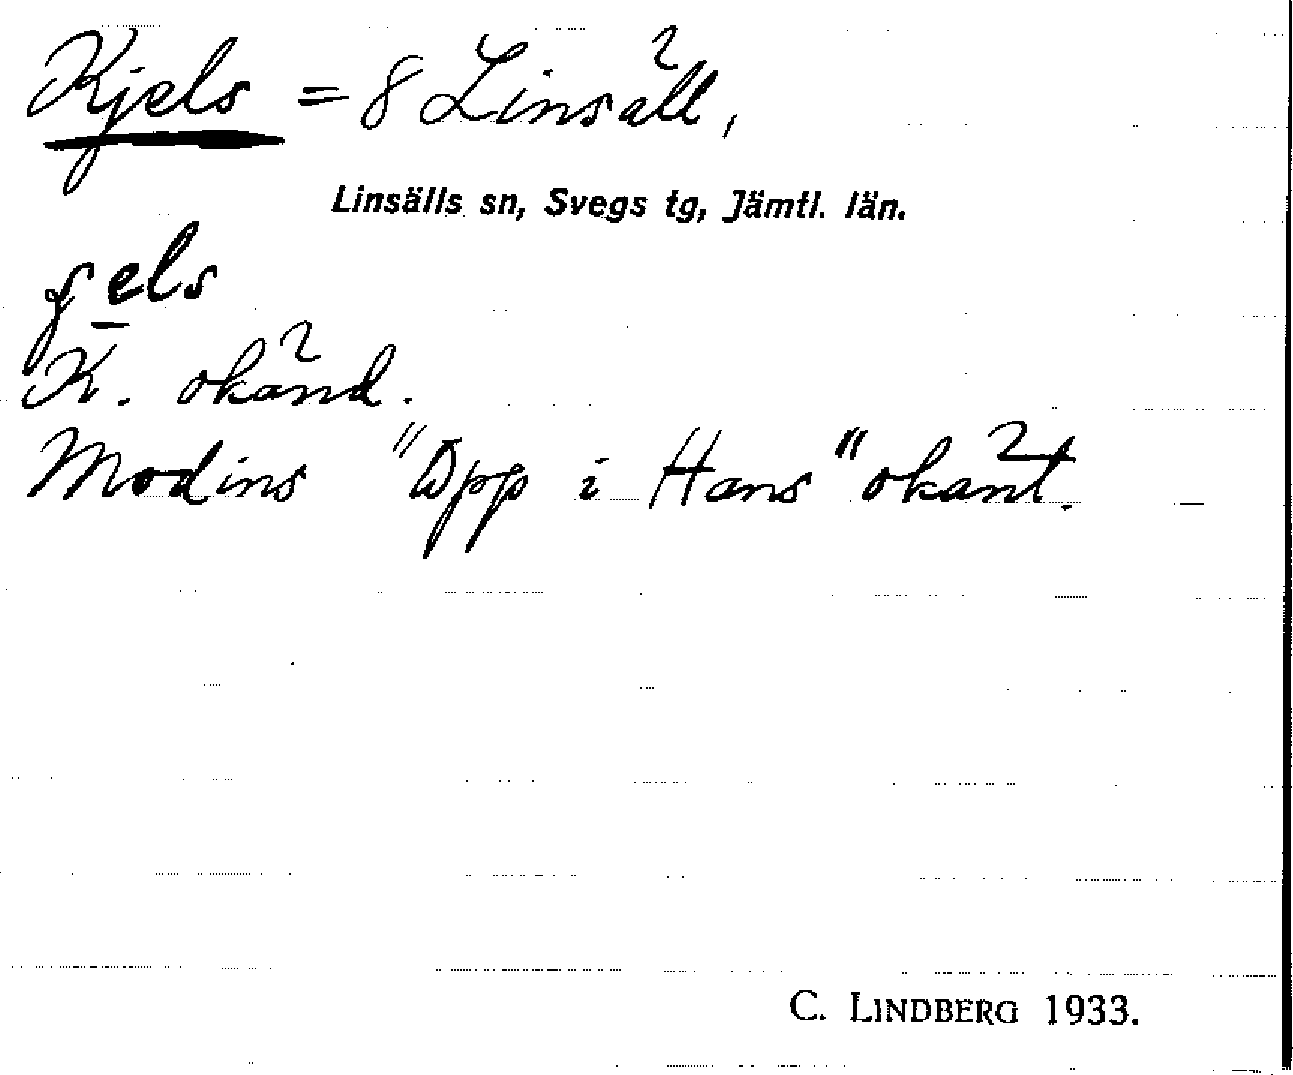 Kjels = 8 Linsäll,
Linsälls sn, Svegs tg, Jämtl. län.
els
K. okänd.
Modins "Opp i Hans" okänt.
C. LINDBERG 1933.